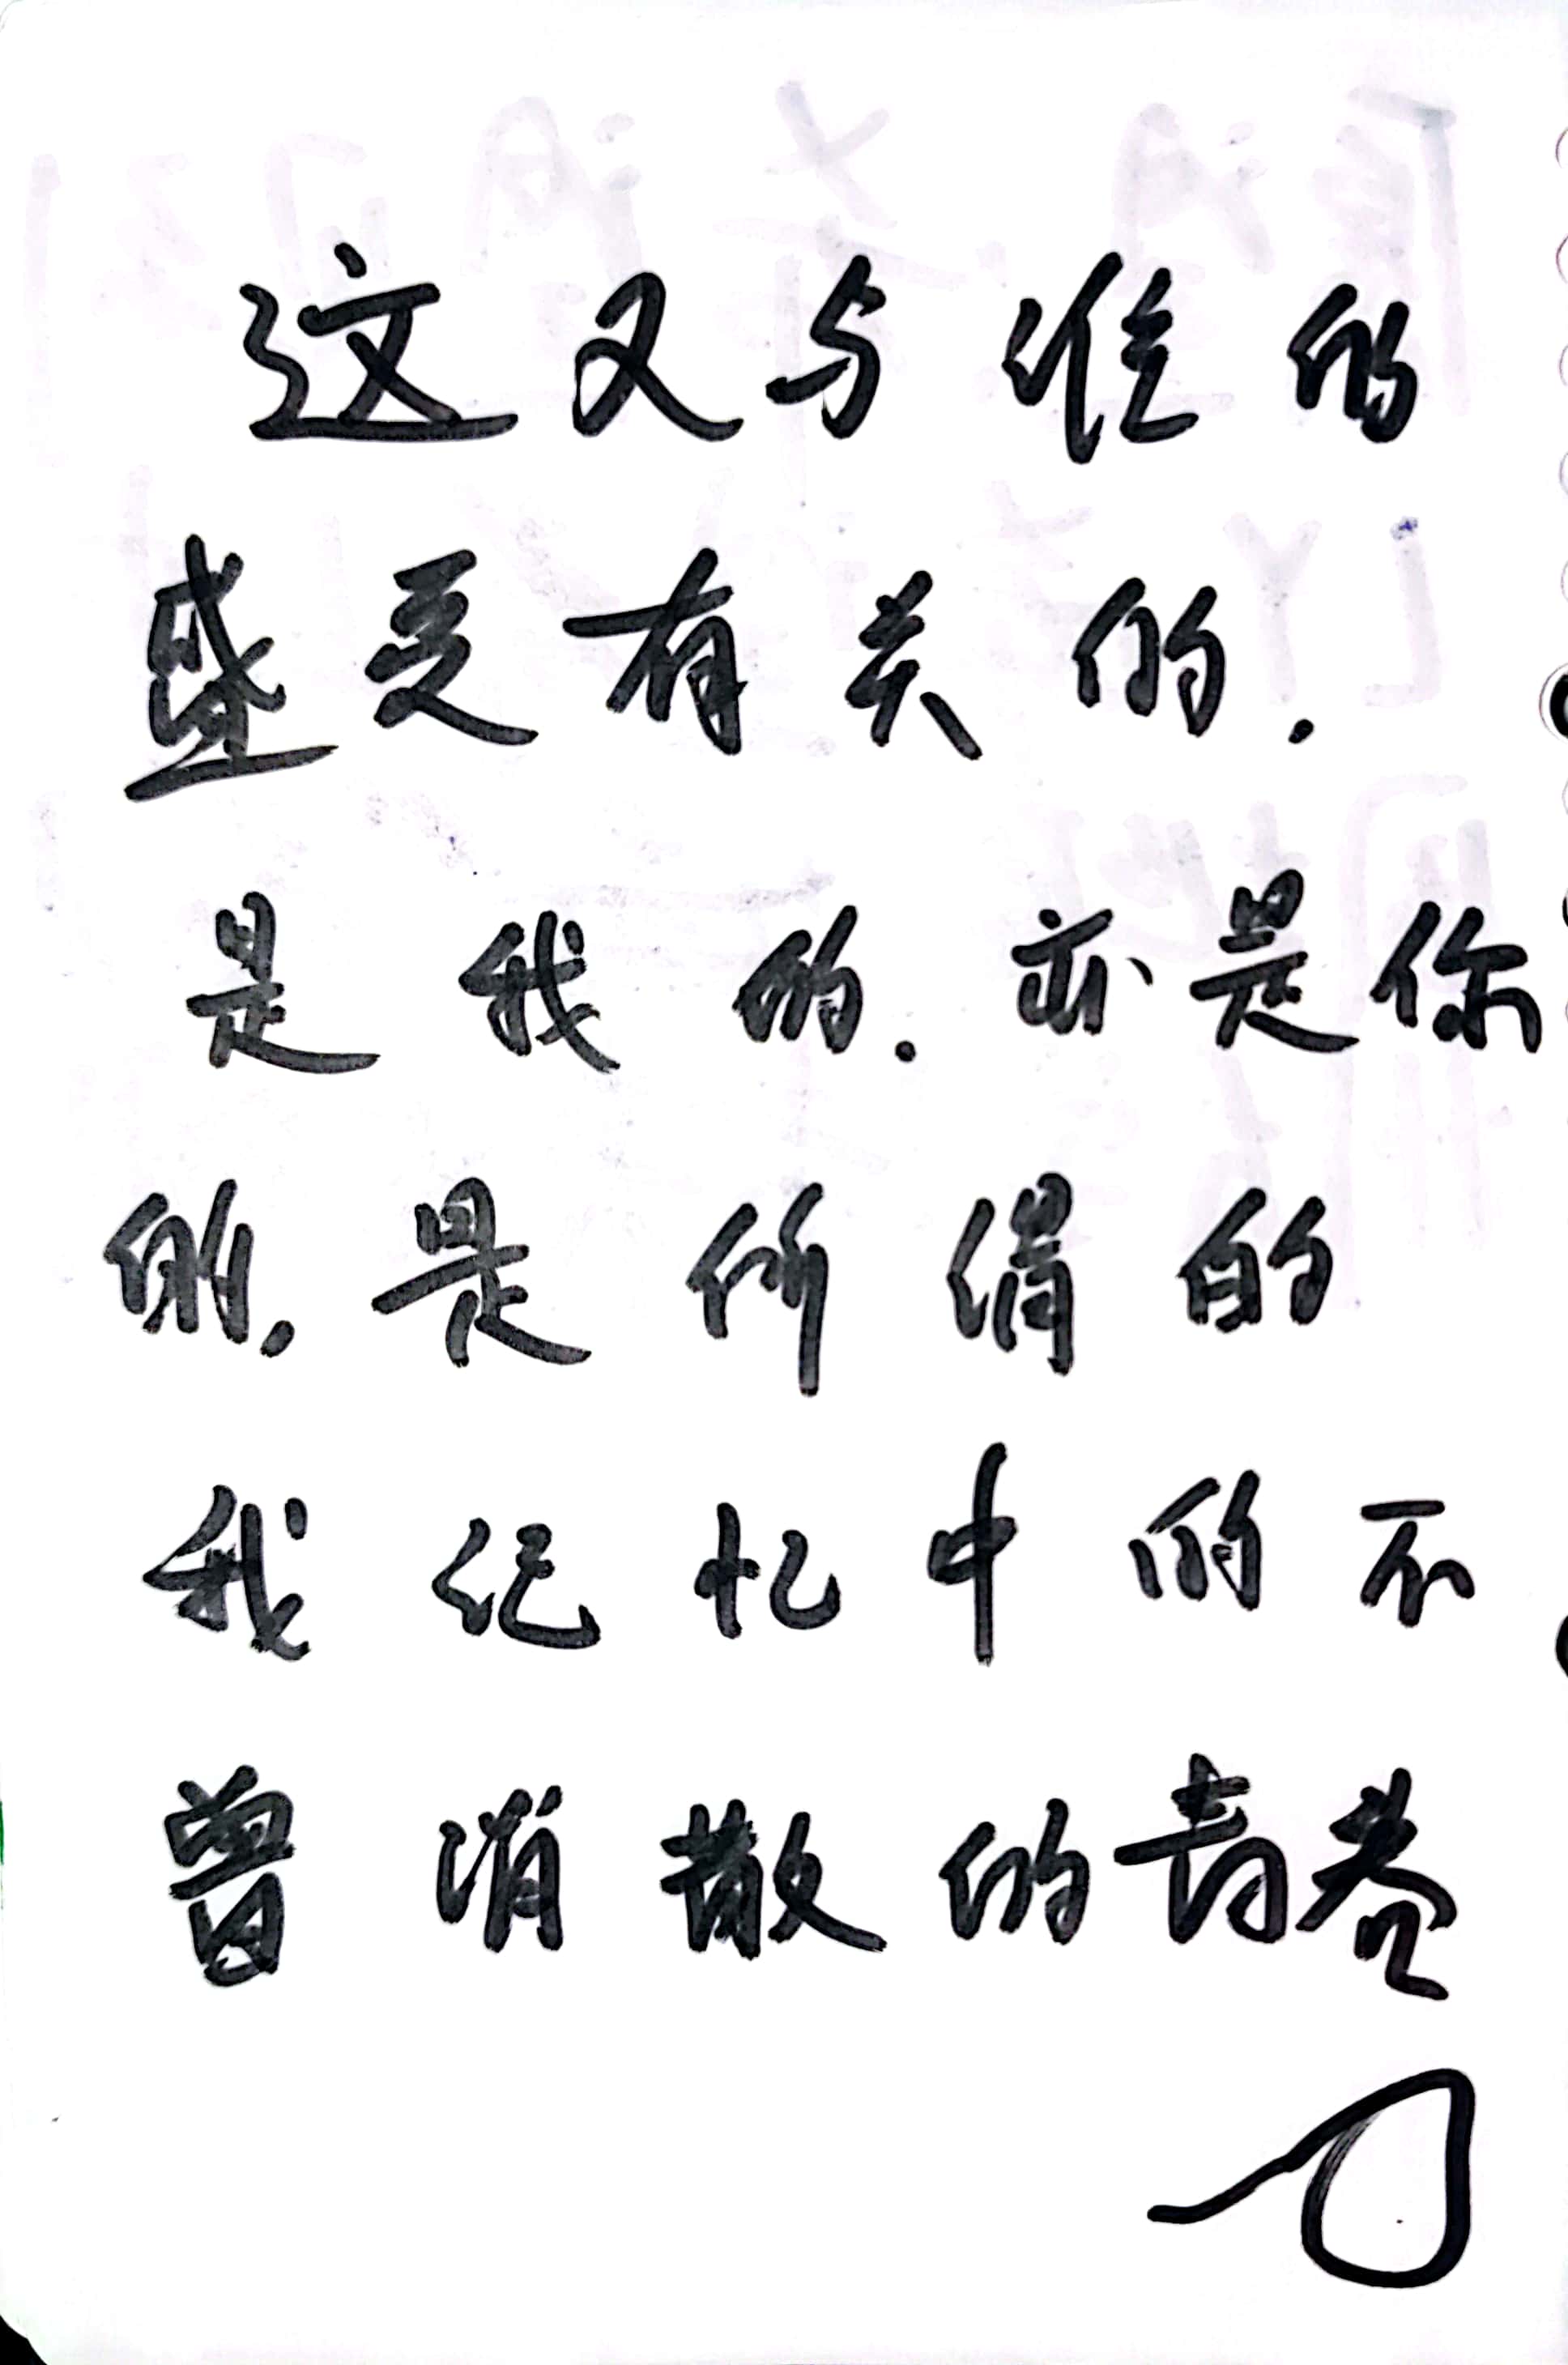 这又与谁的
盛夏有关的.
是我的.亦是你
的.是所得的
我记忆中的不
曾消散的青春